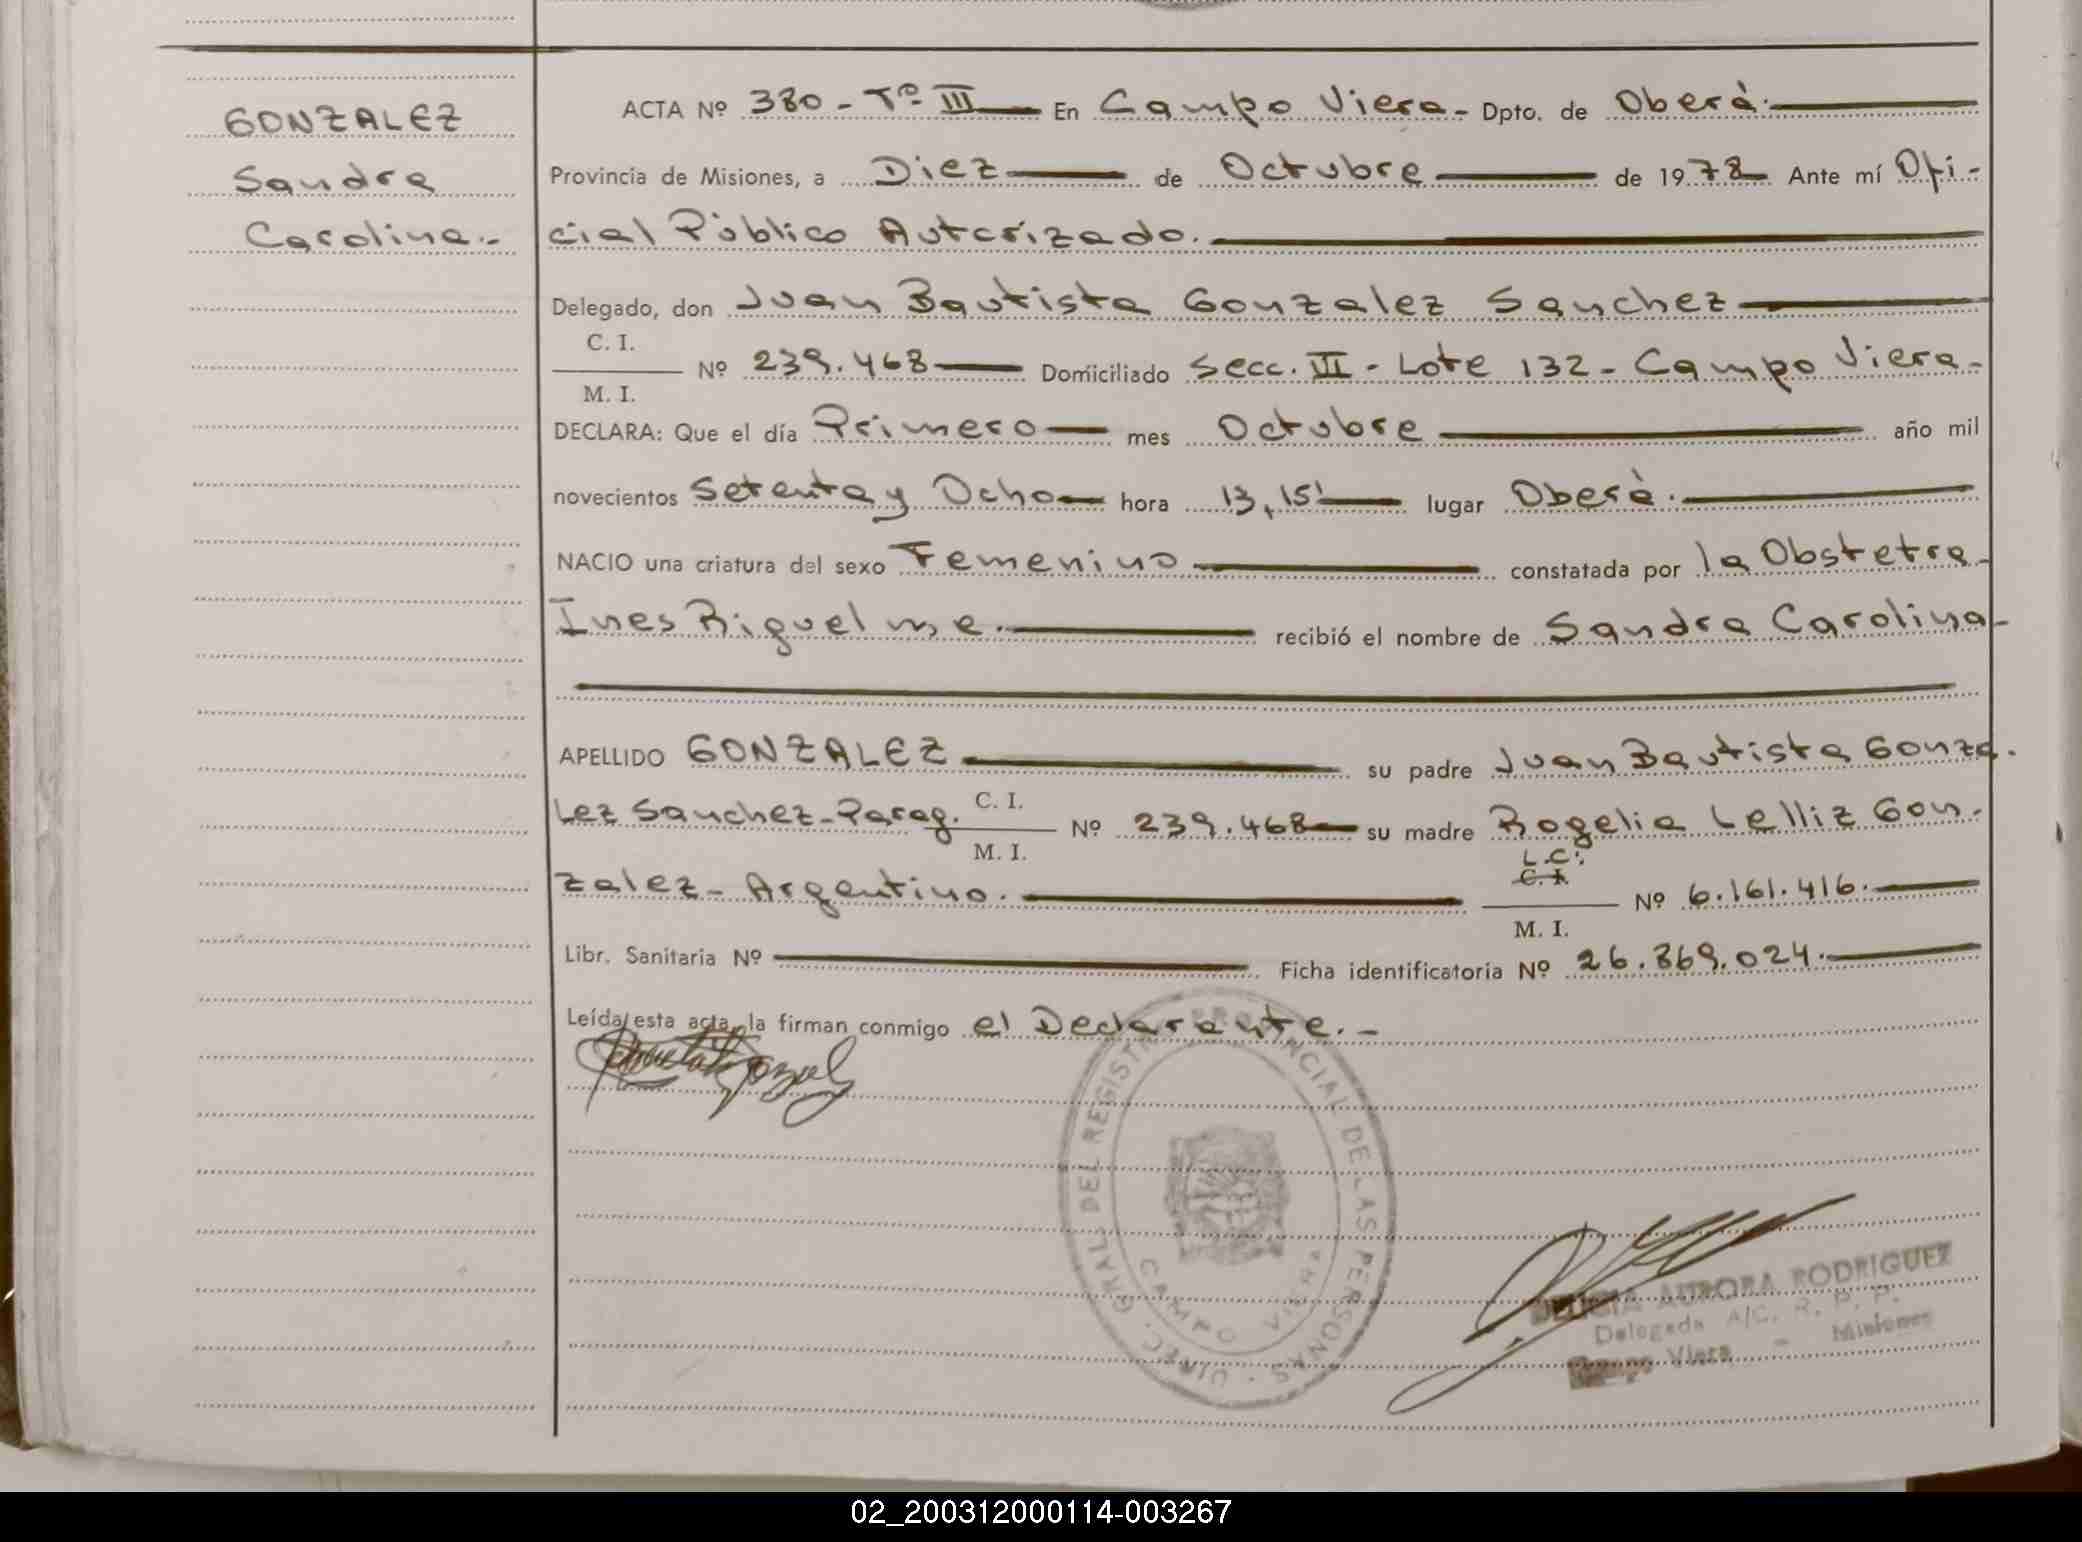 GONZALEZ
Sandra
Carolina.-
ACTA Nº 380 - Tº III En Campo Viera - Dpto. de Oberá.
Provincia de Misiones, a Diez de Octubre de 1978 Ante mí Ofi-
cial Público Autorizado.
Delegado, don Juan Bautista Gonzalez Sanchez
C. I.
M. I.
Nº 239.468 Domiciliado Secc. III - Lote 132 - Campo Viera -
DECLARA: Que el día Primero mes Octubre año mil
novecientos Setenta y Ocho hora 13,15' lugar Oberá.
NACIO una criatura del sexo Femenino constatada por la Obstetra -
Ines Riquelme. recibió el nombre de Sandra Carolina -
APELLIDO GONZALEZ su padre Juan Bautista Gonza-
lez Sanchez - Parag. C. I.
M. I.
Nº 239.468 su madre Rogelia Lelliz Gon-
zalez - Argentino. L.C.
C. I.
M. I.
Nº 6.161.416.
Libr. Sanitaria Nº Ficha identificatoria Nº 26.869.024.
Leída esta acta, la firman conmigo el Declarante. -
DIREC. GRAL. DEL REGISTRO PROVINCIAL DE LAS PERSONAS
CAMPO VIERA
AURORA RODRIGUEZ
Delegada A/C. R. P. P.
Campo Viera - Misiones
02_200312000114-003267